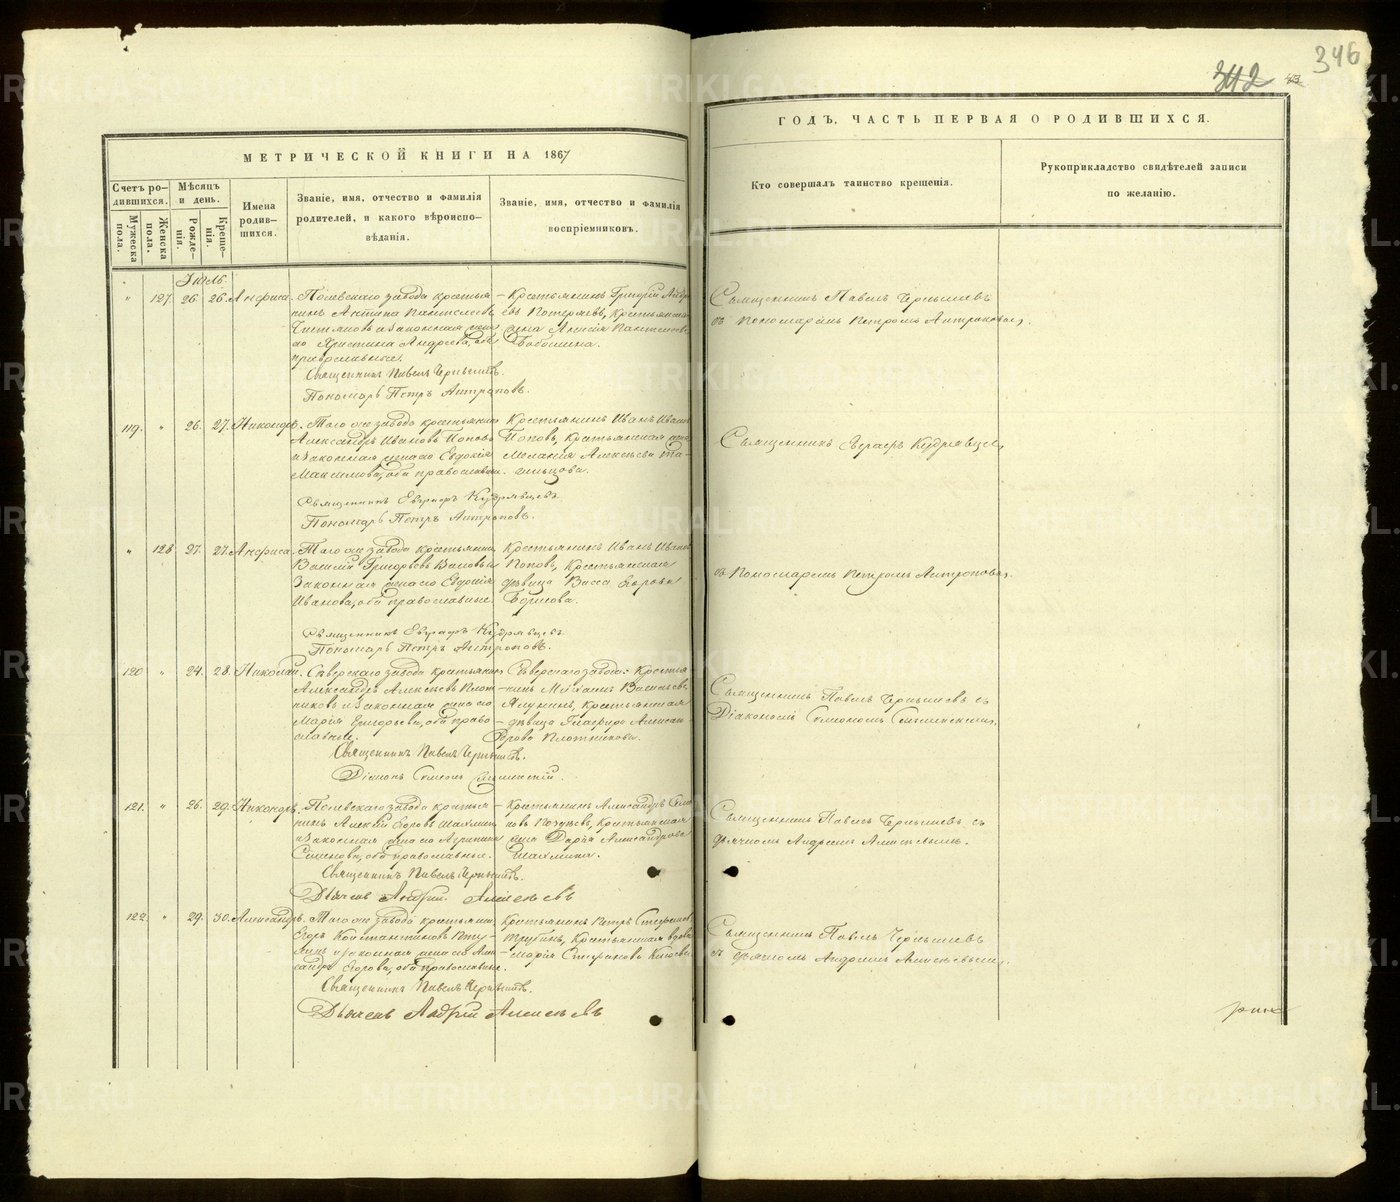 346
342
МЕТРИЧЕСКОЙ КНИГИ НА 1867
Счетъ ро-
дившихся.
Мужеска
пола.
Женска
пола.
Мѣсяцъ
и день.
Рожде-
нія.
Креще-
нія.
Имена
родив-
шихся.
Званіе, имя, отчество и фамилія
родителей, и какого вѣроиспо-
вѣданія.
Званіе, имя, отчество и фамилія
воспріемниковъ.
Іюль.
" 127. 26. 26. Анфиса.
Полевскаго завода крестья-
нинъ Антипа Пантелеевъ
и законная жена
его Христина Андреева, оба
православные.
Крестьянинъ Григорій Андре-
евъ Потеряевъ, Крестьянская
жена Анисія Пантелеева
Священникъ Павелъ Чернышевъ.
Пономарь Петръ Антроповъ.
119. " 26. 27. Никандръ.
Того же завода крестьянинъ
Александръ Ивановъ Поповъ
и законная жена его Евдокія
Максимова, оба православные.
Крестьянинъ Иванъ Ивановъ
Поповъ, Крестьянская жена
Меланія Алексѣева
Священникъ Евграфъ Кудрявцевъ
Пономарь Петръ Антроповъ.
" 128. 27. 27. Анфиса.
Того же завода крестьянинъ
Василій Григорьевъ
Законная жена его Евдокія
Иванова, оба православные.
Крестьянинъ Иванъ Ивановъ
Поповъ, Крестьянская
дѣвица Васса Егорова
Борисова.
Священникъ Евграфъ Кудрявцевъ
Пономарь Петръ Антроповъ.
120 " 24. 28. Николай.
Сѣверскаго завода крестьянинъ
Александръ Алексѣевъ Плот-
никовъ и законная жена его
Марія Григорьева, оба право-
славные.
Сѣверскаго завода: Крестья-
нинъ Михаилъ Васильевъ
Крестьянская
дѣвица Глафира Алексан-
дрова Плотникова.
Священникъ Павелъ Чернышевъ.
Діаконъ Симеонъ
121. " 26. 29. Никандръ.
Полевскаго завода крестья-
нинъ Алексѣй Егоровъ Шахминъ
и законная жена его Агрипина
Семенова, оба православные.
Крестьянинъ Александръ Семе-
новъ Крестьянская
жена Дарья Александрова
Шахмина.
Священникъ Павелъ Чернышевъ.
Дьячекъ Андрей Алексѣевъ
122. " 29. 30. Александръ.
Того же завода крестьянинъ
Егоръ Константиновъ
и законная жена его Алек-
сандра Егорова, оба православные.
Крестьянинъ Петръ Степановъ
Трубинъ, Крестьянская вдова
Марія Степанова
Священникъ Павелъ Чернышевъ.
Дьячекъ Андрей Алексѣевъ
ГОДЪ, ЧАСТЬ ПЕРВАЯ О РОДИВШИХСЯ.
Кто совершалъ таинство крещенія.
Рукоприкладство свидѣтелей записи
по желанію.
Священникъ Павелъ Чернышевъ
съ пономаремъ Петромъ Антроповымъ.
Священникъ Евграфъ Кудрявцевъ,
съ Пономаремъ Петромъ Антроповымъ.
Священникъ Павелъ Чернышевъ съ
Діакономъ Симеономъ
Священникъ Павелъ Чернышевъ съ
дьячкомъ Андреемъ Алексѣевымъ.
Священникъ Павелъ Чернышевъ
съ дьячкомъ Андреемъ Алексѣевымъ.
METRIKI.GASO-URAL.RU